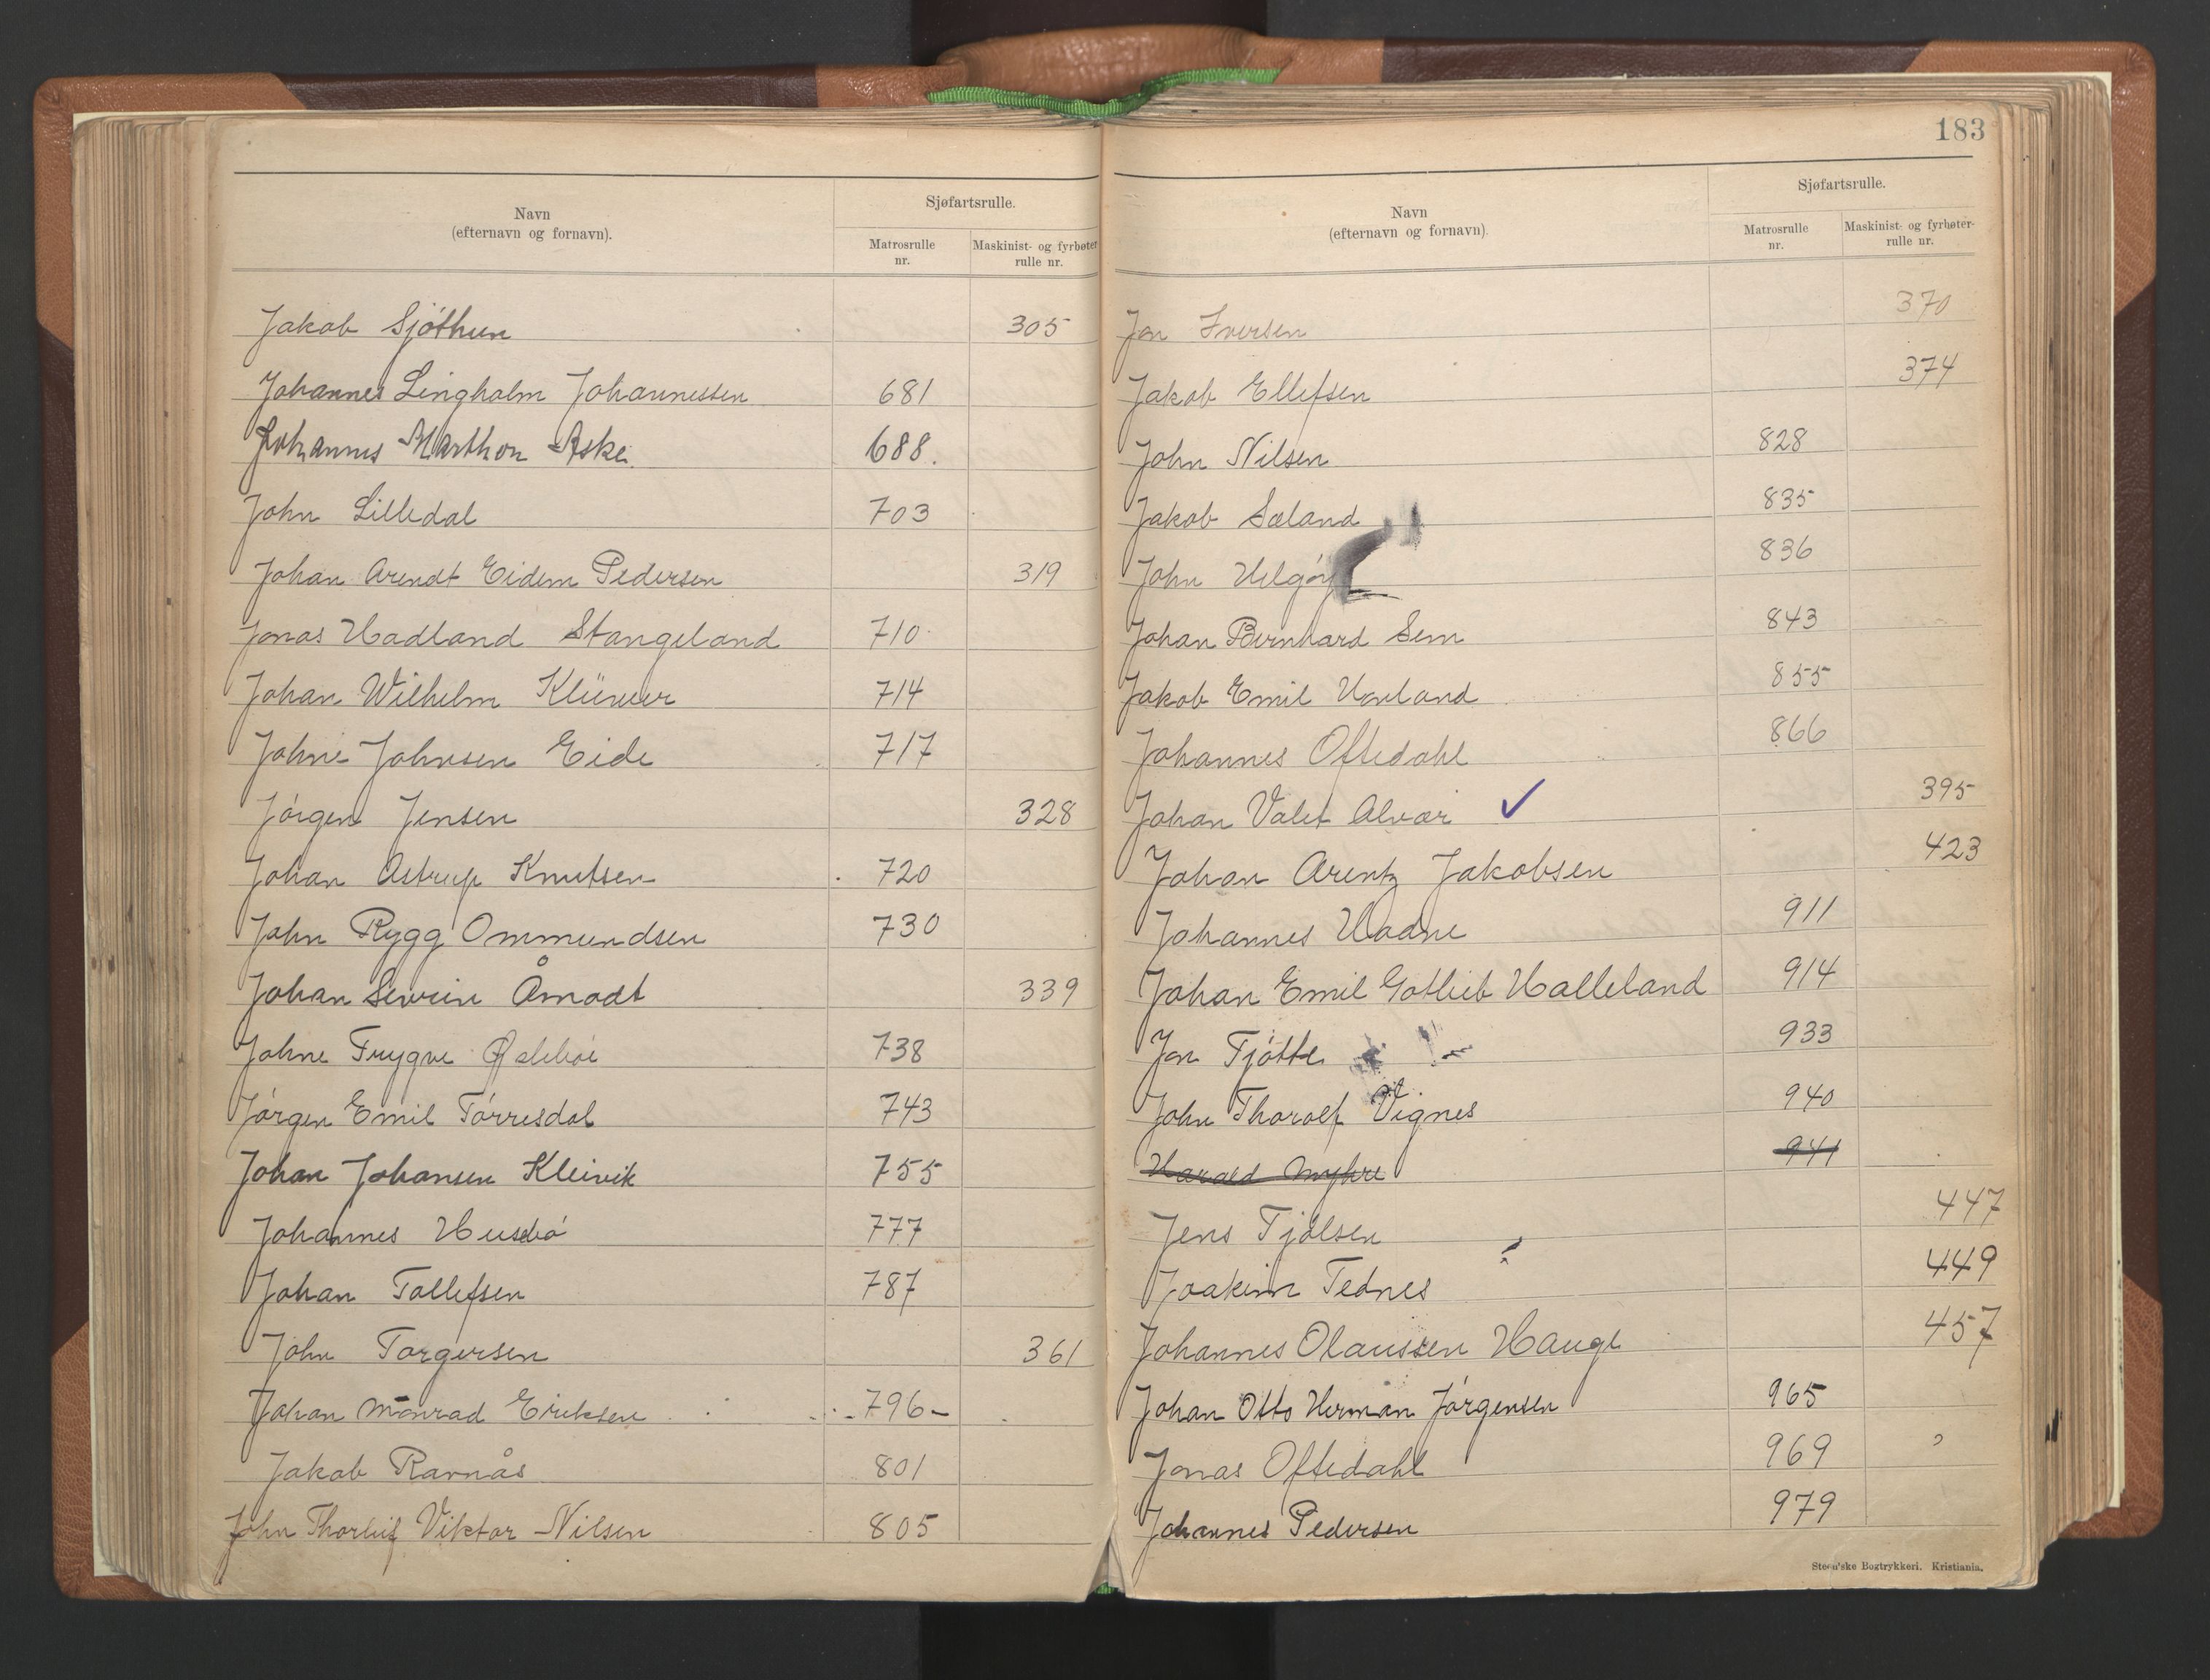 Navn
(efternavn og fornavn).
Sjøfartsrulle.
Matrosrulle
nr.
Maskinist- og fyrbøter
rulle nr.
Jakob Sjöthun 305
Johannes Lingholm Johannessen 681
Johannes Marthon Aske 688.
John Lilledal 703
Johan Arendt Eidem Pedersen 319
Jonas Hadland Stangeland 710
Johan Wilhelm Klüwer 714
Johne Johnsen Eide 717
Jörgen Jensen 328
Johan Astrup Knutsen 720
John Rygg Ommundsen 730
Johan Severin Åmodt 339
Johne Trygve 738
Jörgen Emil Törresdal 743
Johan Johansen Kleivik 755
Johannes Husebö 777
Johan Tollefsen 787
John Torgersen 361
Johan Monrad Eriksen 796-
Jakob Ravnås 801
John Thorleif Viktor Nilsen 805
183
Navn
(efternavn og fornavn).
Sjøfartsrulle.
Matrosrulle
nr.
Maskinist- og fyrbøter-
rulle nr.
Jon Iversen 370
Jakob Ellefsen 374
John Nilsen 828
Jakob Sæland 835
John Helgöy 836
Johan Bernhard Sem 843
Jakob Emil Høland 855
Johannes Oftedahl 866
Johan Valet Alvær ✓ 395
Johan Arentz Jakobsen 423
Johannes Hadne 911
Johan Emil Gotlieb Halleland 914
Jon Tjötta 933
John Thorolf Vignes 940
Harald Myhre 941
Jens Tjølsen 447
Joakim Tednes 449
Johannes Olaussen Hauge 457
Johan Otto Herman Jörgensen 965
Jonas Oftedahl 969
Johannes Pedersen 979
Steen'ske Bogtrykkeri. Kristiania.